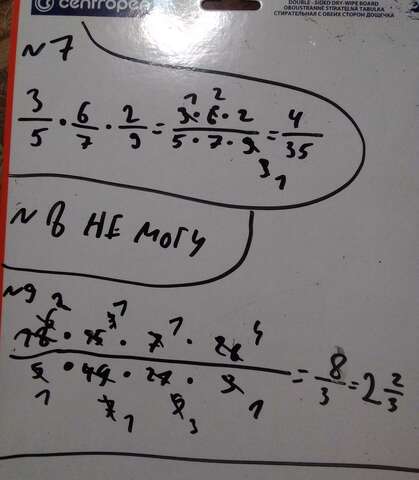 centropen
DOUBLE - SIDED DRY-WIPE BOARD
OBOUSTRANNĚ STÍRATELNÁ TABULKA
СТИРАТЕЛЬНАЯ С ОБЕИХ СТОРОН ДОЩЕЧКА
N7
1 2
3/5 · 6/7 · 2/9 = 3·6·2 / 5·7·9 = 4/35
3 1
N 8 НЕ МОГУ
N9
= 8/3 = 2 2/3